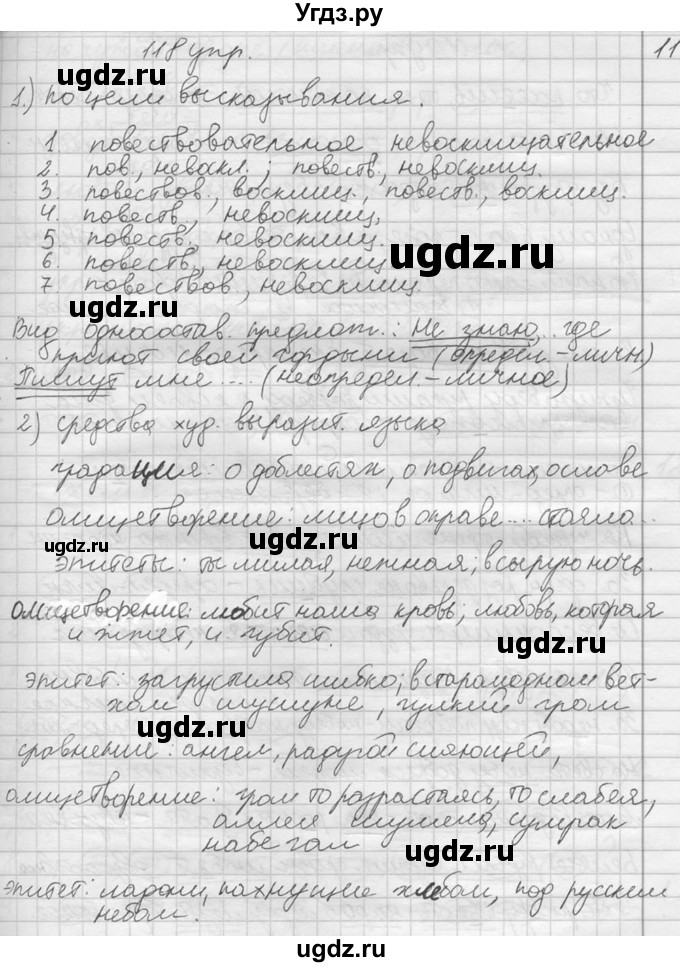 Угдз.ру
118 упр.
11
1.) по цели высказывания.
1. повествовательное, невосклицательное
2. пов., невоскл.; повеств., невосклиц.
3. повествов., восклиц., повеств., восклиц.
4. повеств., невосклиц.
5. повеств., невосклиц.
6. повеств., невосклиц
7 повествов, невосклиц.
Вид односостав. предлож.: Не знаю, где
приют своей гордыни (определ.-личн)
Пишут мне ... (неопредел.-личное)
2) средства худ. выразит. языка
градация: о доблестях, о подвигах, о славе
олицетворение: лицо в оправе ... стояло..
эпитеты: ты милая, нежная; в сырую ночь.
олицетворение: любит наша кровь; любовь, которая
и жжет, и губит.
эпитет: загрустила шибко; в старомодном вет-
хом шушуне, гулкий гром
сравнение: ангел, радугой сияющей,
олицетворение: гром то разрастаясь, то слабея,
аллея шумела, сумрак
набегал
эпитет: ладони, пахнущие хлебом, под русским
небом.
ugdz.ru
ugdz.ru
ugdz.ru
ugdz.ru
ugdz.ru
ugdz.ru
ugdz.ru
ugdz.ru
ugdz.ru
ugdz.ru
ugdz.ru
ugdz.ru
ugdz.ru